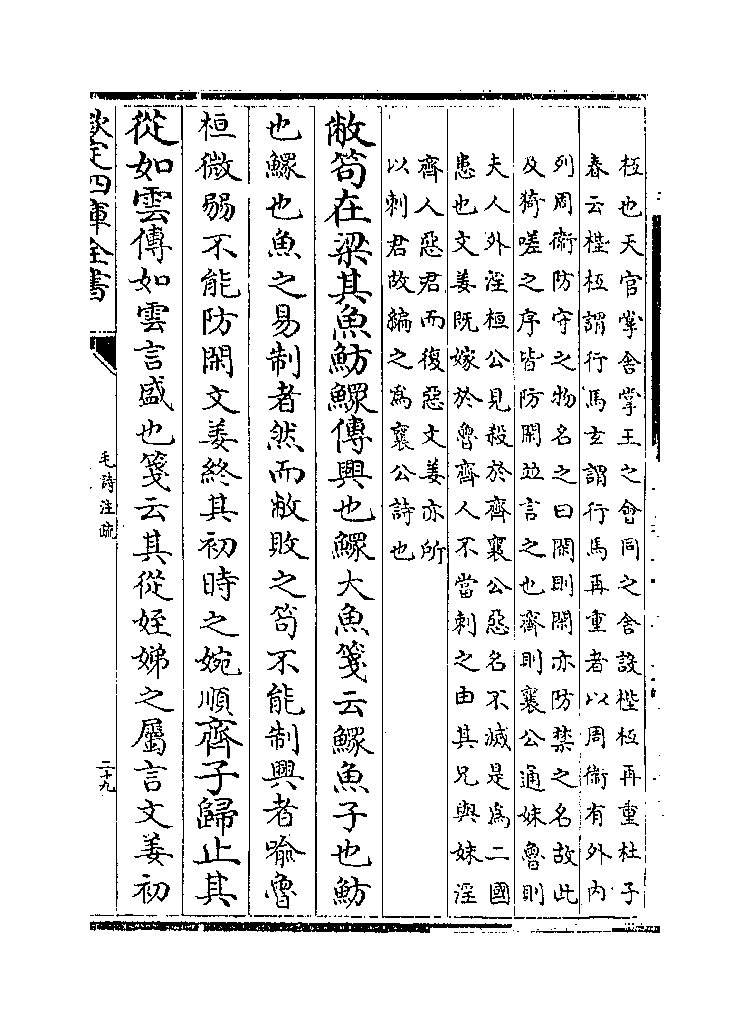 枑也天官掌舍掌王之會同之舍設梐枑再重杜子
春云梐枑謂行馬玄謂行馬再重者以周衞有外内
列周衞防守之物名之曰閑則閑亦防禁之名故此
及猗嗟之序皆防閑並言之也齊則襄公通妹魯則
夫人外淫桓公見殺於齊襄公惡名不滅是爲二國
患也文姜既嫁於魯齊人不當刺之由其兄與妹淫
齊人惡君而復惡文姜亦所
以刺君故編之爲襄公詩也
敝笱在梁其魚魴鰥傳興也鰥大魚箋云鰥魚子也魴
也鰥也魚之易制者然而敝敗之笱不能制興者喩魯
桓微弱不能防閑文姜終其初時之婉順齊子歸止其
從如雲傳如雲言盛也箋云其從姪娣之屬言文姜初
欽定四庫全書
毛詩注疏
二十九